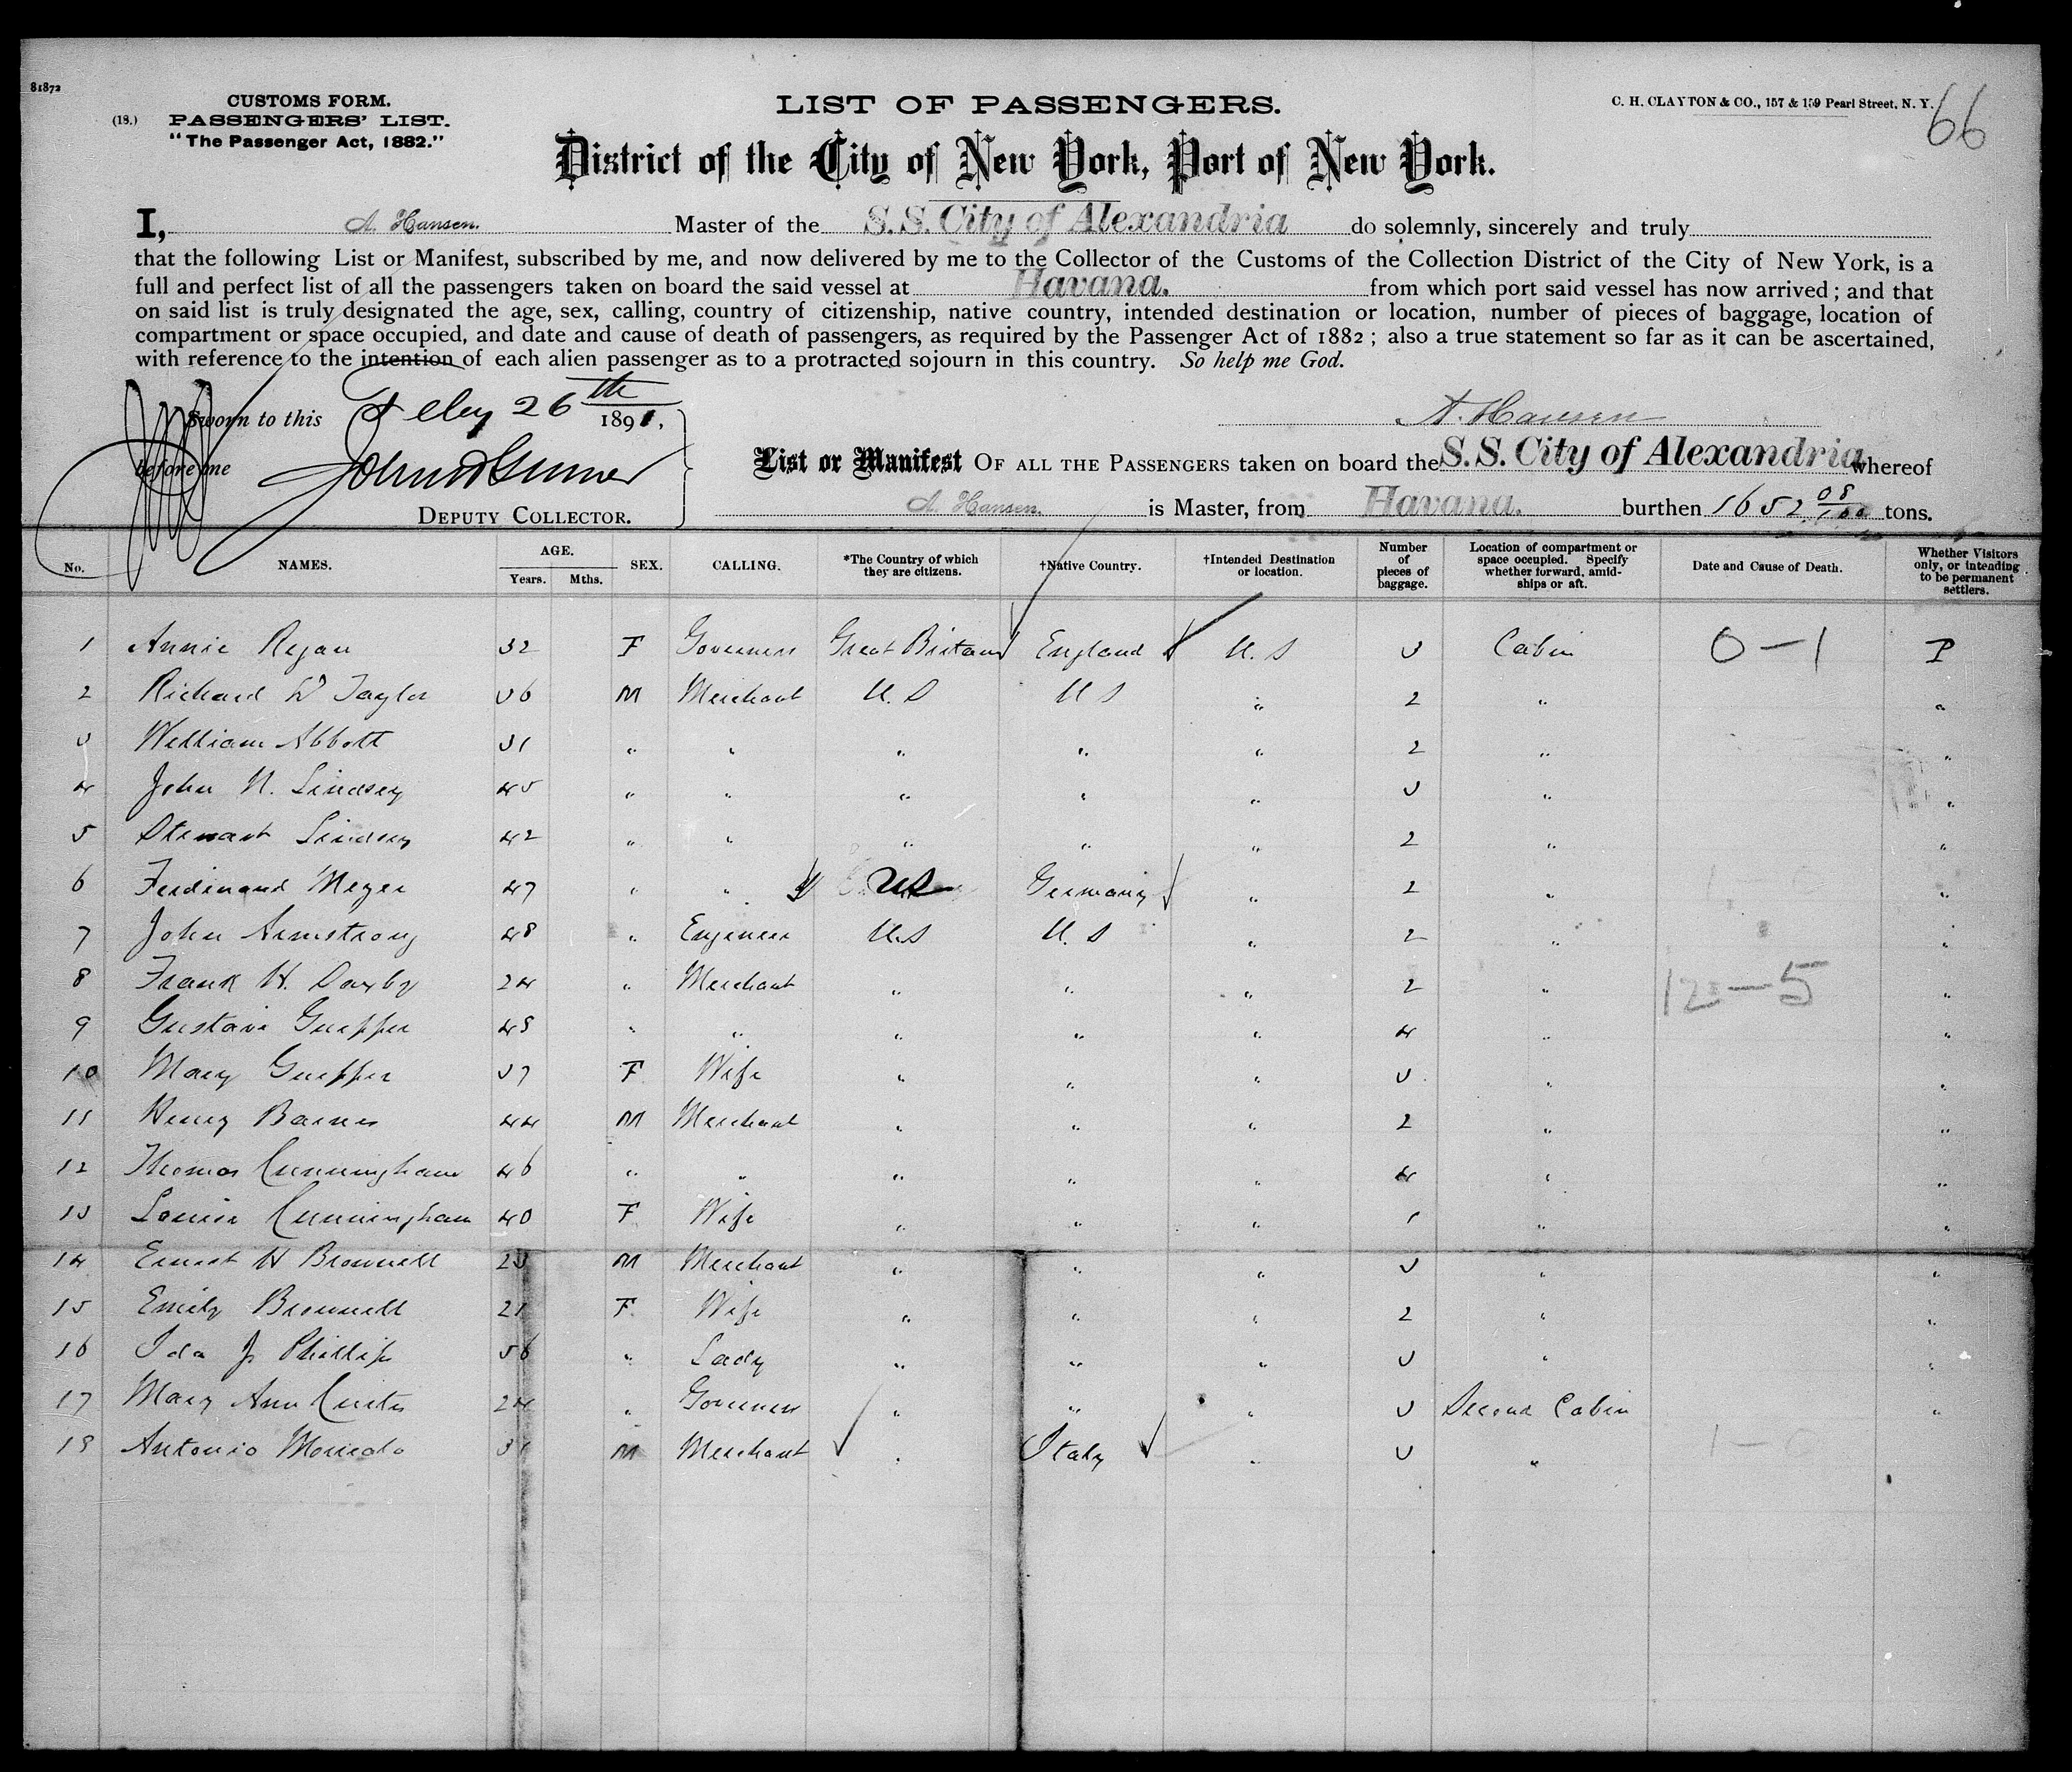 81872
CUSTOMS FORM.
(18.) PASSENGERS' LIST.
"The Passenger Act, 1882."
LIST OF PASSENGERS.
C. H. CLAYTON & CO., 157 & 159 Pearl Street, N. Y.
66
District of the City of New York, Port of New York.
I, A. Hansen. Master of the S.S. City of Alexandria do solemnly, sincerely and truly
that the following List or Manifest, subscribed by me, and now delivered by me to the Collector of the Customs of the Collection District of the City of New York, is a
full and perfect list of all the passengers taken on board the said vessel at Havana. from which port said vessel has now arrived; and that
on said list is truly designated the age, sex, calling, country of citizenship, native country, intended destination or location, number of pieces of baggage, location of
compartment or space occupied, and date and cause of death of passengers, as required by the Passenger Act of 1882; also a true statement so far as it can be ascertained,
with reference to the intention of each alien passenger as to a protracted sojourn in this country. So help me God.
Sworn to this 26th 1891,
A. Hansen
before me
DEPUTY COLLECTOR.
List or Manifest OF ALL THE PASSENGERS taken on board the S.S. City of Alexandria whereof
A. Hansen. is Master, from Havana. burthen 1652 08/100 tons.
No. NAMES. AGE. Years. Mths. SEX. CALLING. *The Country of which they are citizens. †Native Country. †Intended Destination or location. Number of pieces of baggage. Location of compartment or space occupied. Specify whether forward, amidships or aft. Date and Cause of Death. Whether Visitors only, or intending to be permanent settlers.
1 Annie Regan 32 F Governess Great Britain England U.S 3 Cabin 0-1 P
2 Richard W Taylor 36 M Merchant U.S U S " 2 " "
3 William Abbott 31 " " " " " 2 " "
4 John N. Lindsey 45 " " " " " 3 " "
5 Stewart Lindsey 42 " " " " " 2 " "
6 Ferdinand Meyer 47 " " US Germany " 2 " "
7 John Armstrong 48 " Engineer U.S U.S " 2 " "
8 Frank H. Darby 24 " Merchant " " " 2 " 12-5 "
9 Gustave 48 " " " " " 4 " "
10 Mary 37 F Wife " " " 3 " "
11 Henry Barnes 44 M Merchant " " " 2 " "
12 Thomas Cunningham 46 " " " " " 4 " "
13 Louisa Cunningham 40 F Wife " " " 1 " "
14 Ernest H Brownell 23 M Merchant " " " 3 " "
15 Emily Brownell 21 F Wife " " " 2 " "
16 Ida J. Phillips 56 " Lady " " " 3 " "
17 Mary Ann Curtis 24 " Governess " " " 3 Second Cabin "
18 Antonio 31 M Merchant " Italy " 3 " 1-0